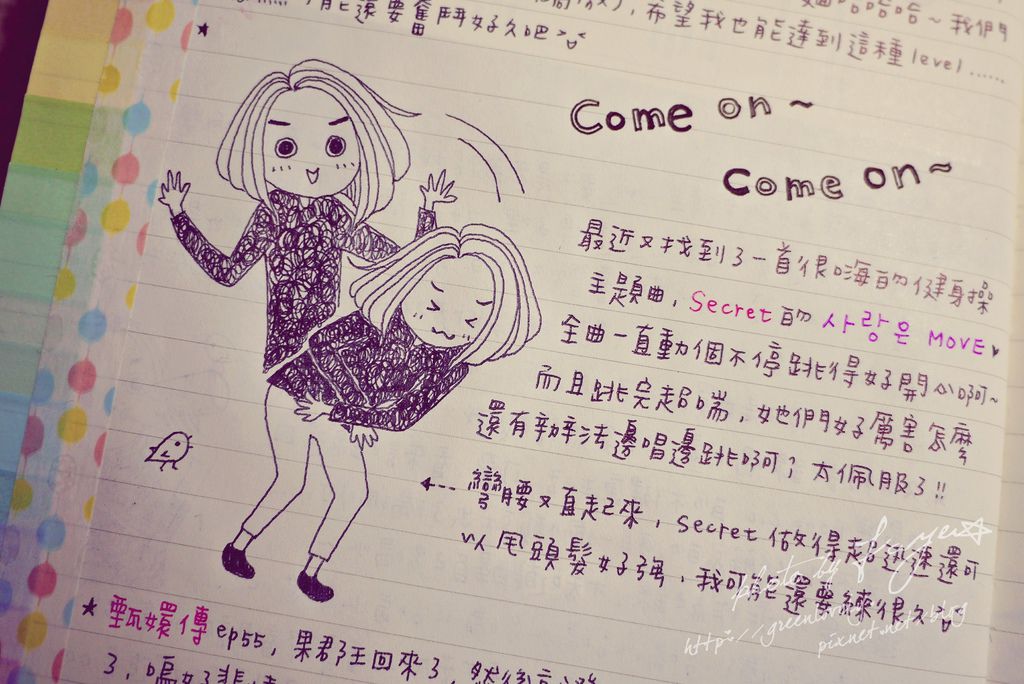 能還要奮鬥好久吧
希望我也能達到這種level......
哈哈哈~我們
Come on~
Come on~
最近又找到了一首很嗨的健身操
主題曲，Secret的 사랑은 MOVE♥
全曲一直動個不停跳得好開心啊~
而且跳完超喘，她們好厲害怎麼
還有辦法邊唱邊跳啊；太佩服了!!
彎腰又直起來，secret做得超迅速還可
以甩頭髮好強，我可能還要練很久
★甄嬛傳 ep55，果郡王回來了，然後
了，嗚好悲
photo by
http://green
pixnet.net/blog